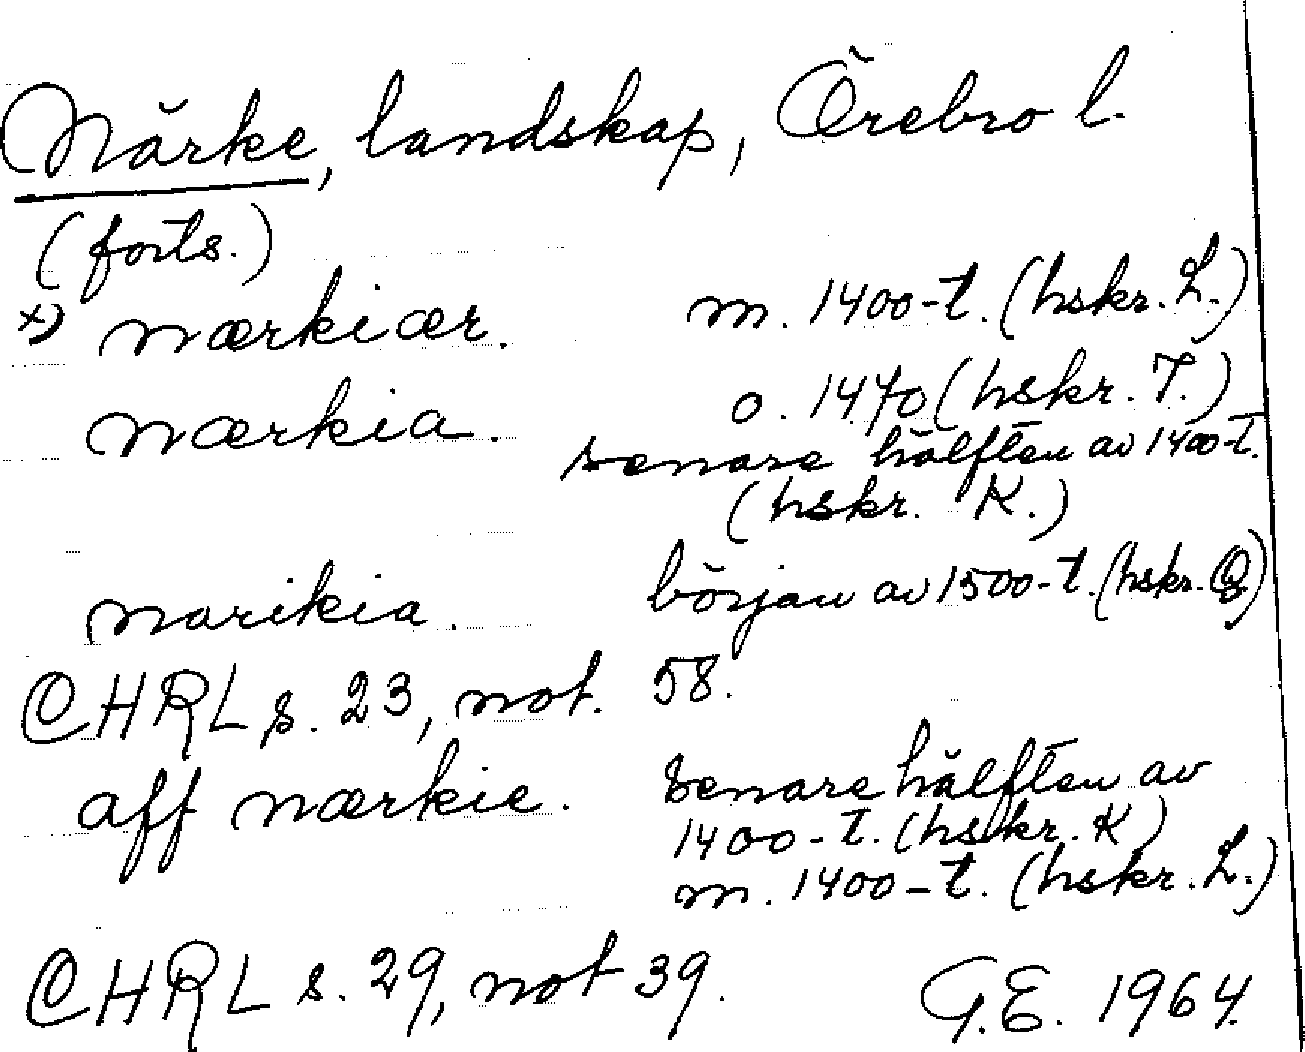 Närke, landskap, Örebro l.
(forts.)
x) nærkiær. m. 1400-t. (hskr. L.)
nærkia. o. 1470 (hskr. T.)
senare hälften av 1400-t.
(hskr. K.)
narikia. början av 1500-t. (hskr. Q)
CHRL s. 23, not. 58.
aff nærkie. senare hälften av
1400-t. (hskr. K)
m. 1400-t. (hskr. L.)
CHRL s. 29, not 39. G.E. 1964.